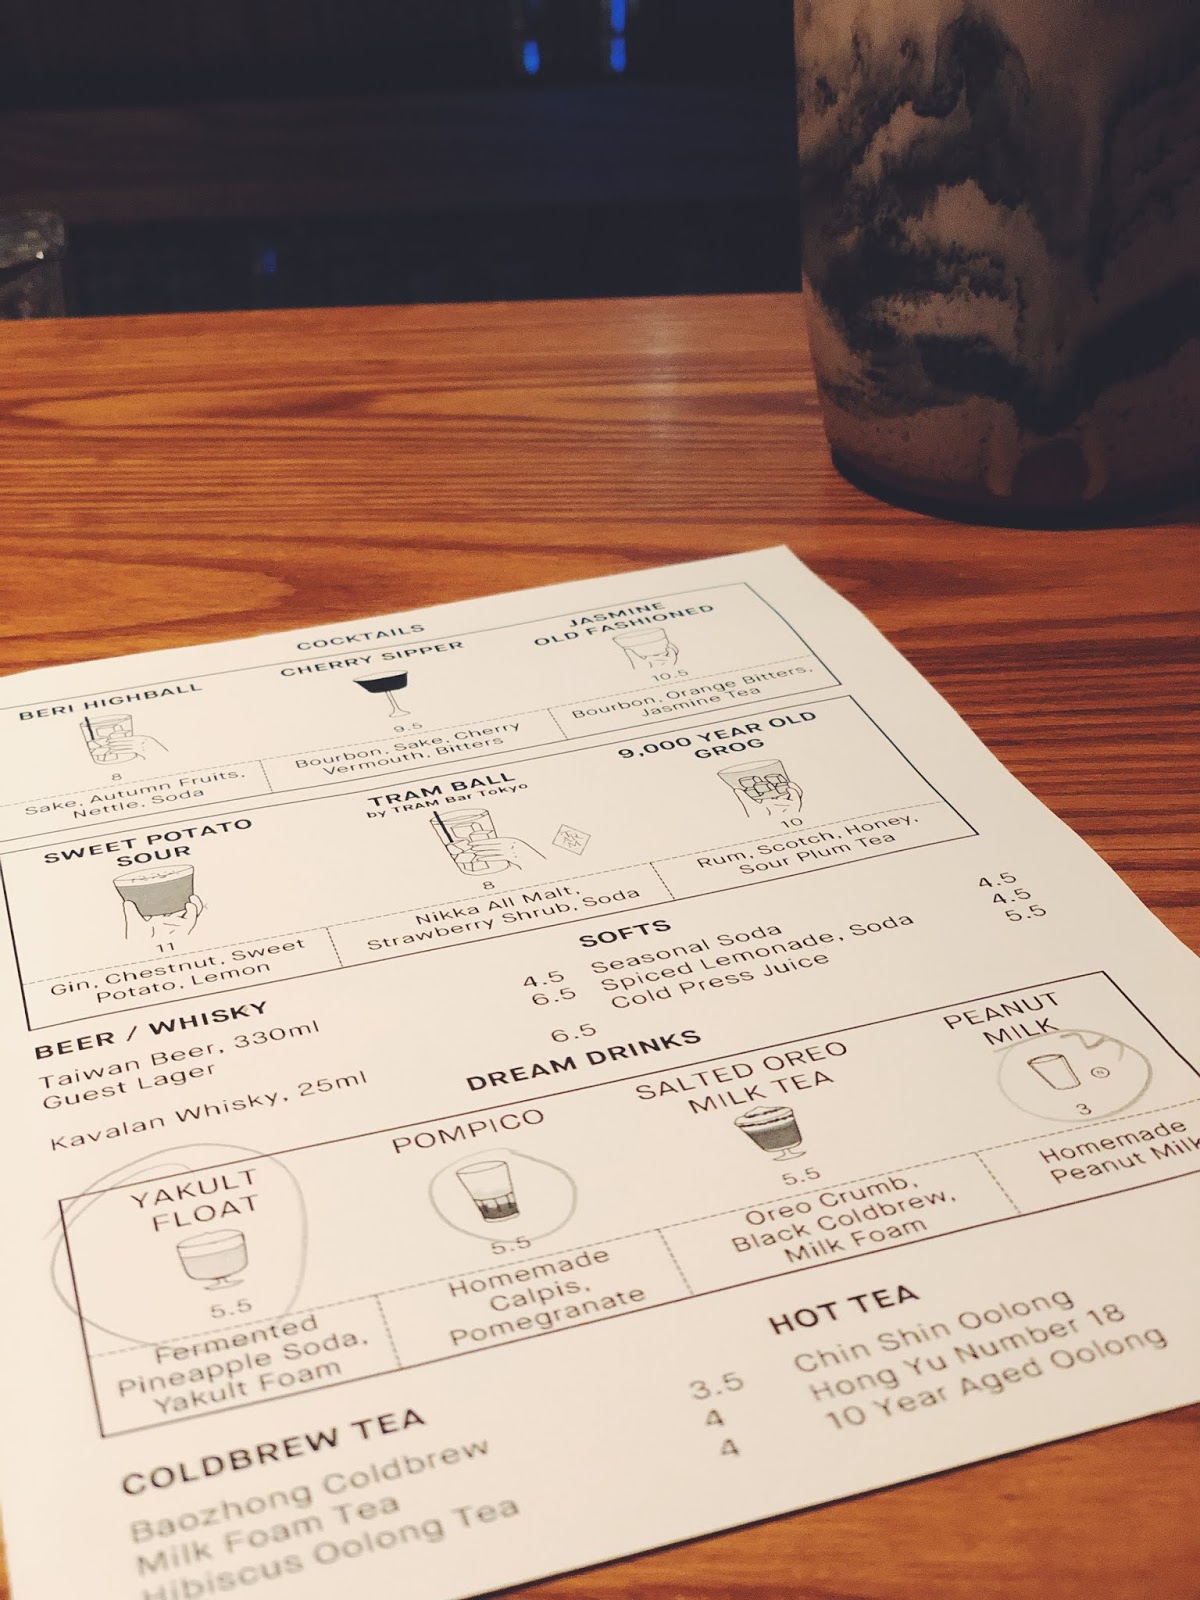 COCKTAILS
BERI HIGHBALL
8
Sake, Autumn Fruits,
Nettle, Soda
CHERRY SIPPER
9.5
Bourbon, Sake, Cherry
Vermouth, Bitters
JASMINE
OLD FASHIONED
10.5
Bourbon, Orange Bitters,
Jasmine Tea
SWEET POTATO
SOUR
11
Gin, Chestnut, Sweet
Potato, Lemon
TRAM BALL
by TRAM Bar Tokyo
8
Nikka All Malt,
Strawberry Shrub, Soda
9,000 YEAR OLD
GROG
10
Rum, Scotch, Honey,
Sour Plum Tea
BEER / WHISKY
Taiwan Beer, 330ml 4.5
Guest Lager 6.5
Kavalan Whisky, 25ml 6.5
SOFTS
Seasonal Soda 4.5
Spiced Lemonade, Soda 4.5
Cold Press Juice 5.5
DREAM DRINKS
YAKULT
FLOAT
5.5
Fermented
Pineapple Soda,
Yakult Foam
POMPICO
5.5
Homemade
Calpis,
Pomegranate
SALTED OREO
MILK TEA
5.5
Oreo Crumb,
Black Coldbrew,
Milk Foam
PEANUT
MILK
3
Homemade
Peanut Milk
COLDBREW TEA
Baozhong Coldbrew 3.5
Milk Foam Tea 4
Hibiscus Oolong Tea 4
HOT TEA
Chin Shin Oolong
Hong Yu Number 18
10 Year Aged Oolong